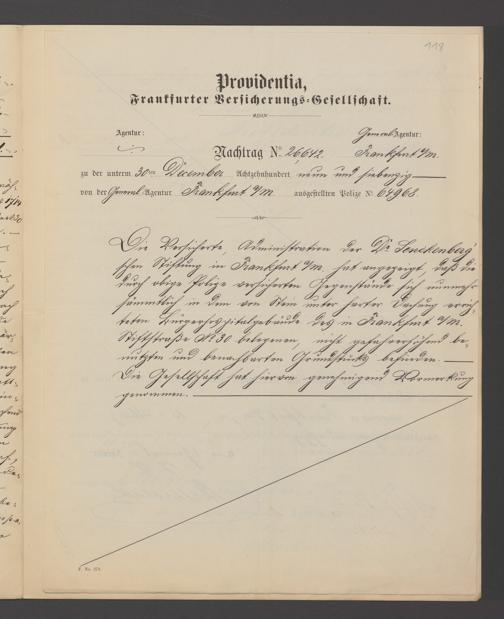 118
Providentia,
Frankfurter Versicherungs-Gesellschaft.
Agentur:
General Agentur:
Nachtrag No. 26,642.
Frankfurt a/M.
zu der unterm 30ten December Achtzehnhundert neun und siebenzig
von der General-Agentur Frankfurt a/M. ausgestellten Polize No. 64968.
Die Versicherte, Administration der Dr. Senckenberg'
schen Stiftung in Frankfurt a/M. hat angezeigt, daß die
durch obige Polize versicherten Gegenstände sich nunmehr
sämmtlich in dem von Stein unter harter Dachung errich
teten Bürgerhospitalgebäude des in Frankfurt a/M.
Stiftstraße No 30 belegenen, nicht gefahrerhöhend be
nutzten und benachbarten Grundstücks befinden.
Die Gesellschaft hat hiervon genehmigend Vormerkung
genommen.